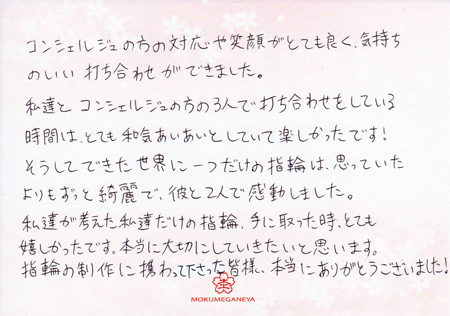 コンシェルジュの方の対応や笑顔がとても良く、気持ち
のいい打ち合わせができました。
私達とコンシェルジュの方の3人で打ち合わせをしている
時間は、とても和気あいあいとしていて楽しかったです!
そうしてできた世界に一つだけの指輪は、思っていた
よりもずっと綺麗で、彼と2人で感動しました。
私達が考えた私達だけの指輪、手に取った時、とても
嬉しかったです。本当に大切にしていきたいと思います。
指輪の制作に携わって下さった皆様、本当にありがとうございました!
MOKUMEGANEYA